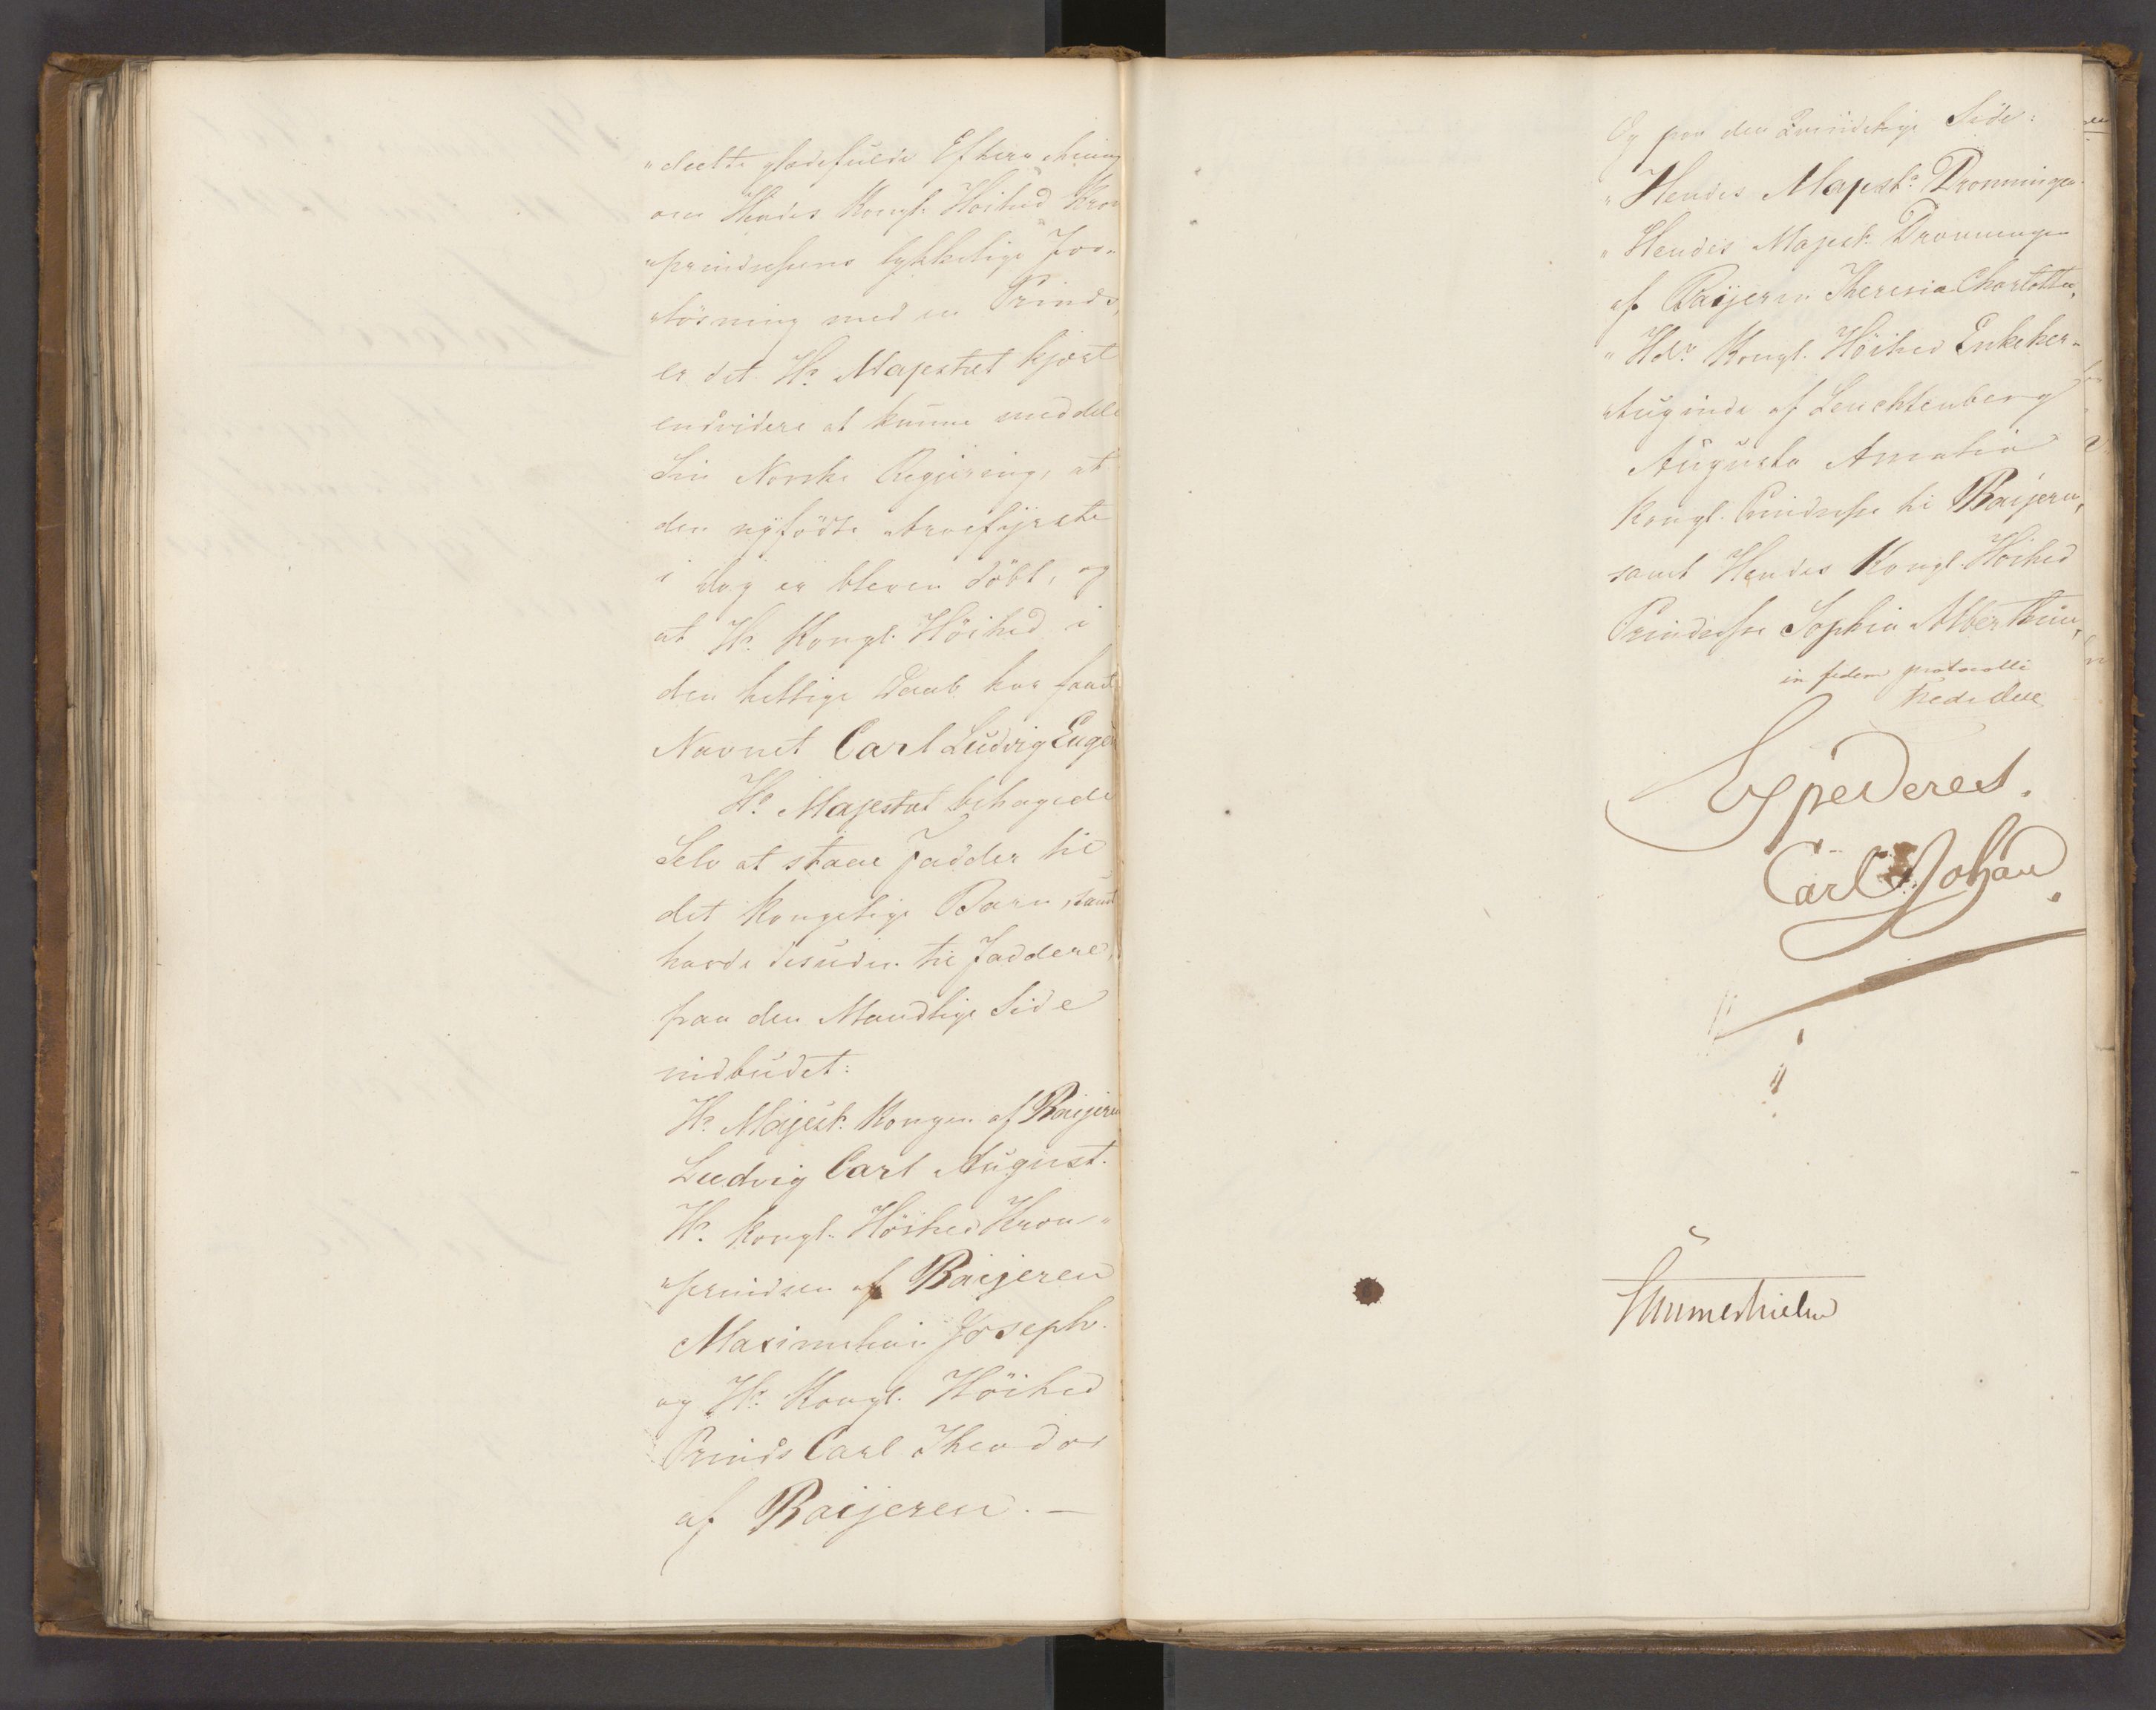 "deelte glædefulde Efterretning
om Hendes Kongl. Höihed Kron
"prindsessens lykkelige For"
"lösning med en Prinds,
er det Hs. Majestæt kjært
endvidere at kunne meddele
Sin Norske Regjering, at
den nyfödte Arvefyrste
i dag er bleven döbt, og
at Hs. Kongl. Höihed i
den hellige Daab har faaet
Navnet Carl Ludvig Eugen
Hs. Majestæt behagede
Selv at staae Fadder til
det kongelige Barn, samt
havde desuden til Faddere,
paa den Mandlige Side
indbudet:
Hs. Majest. Kongen af Baijern
Ludvig Carl August.
Hs. Kongl. Höihed Kron"
"prindsen af Baijeren
Maximilian Joseph.
og Hs. Kongl. Höihed
Prinds Carl Theodor
af Baijeren. —
Og paa den Qvindelige Side:
"Hendes Majestæ. Dronningen.
"Hendes Majest. Dronningen
af Baijern Theresia Charlotta,
"Hds. Kongl. Höihed Enkeher"
"tuginde af Leuchtenberg
Augusta Amalia
Kongl. Prindsesse til Baijern,
samt Hendes Kongl. Höihed
Prindsesse Sophia Albertina,
in fidem protocolli
Expederes.
Carl Johan